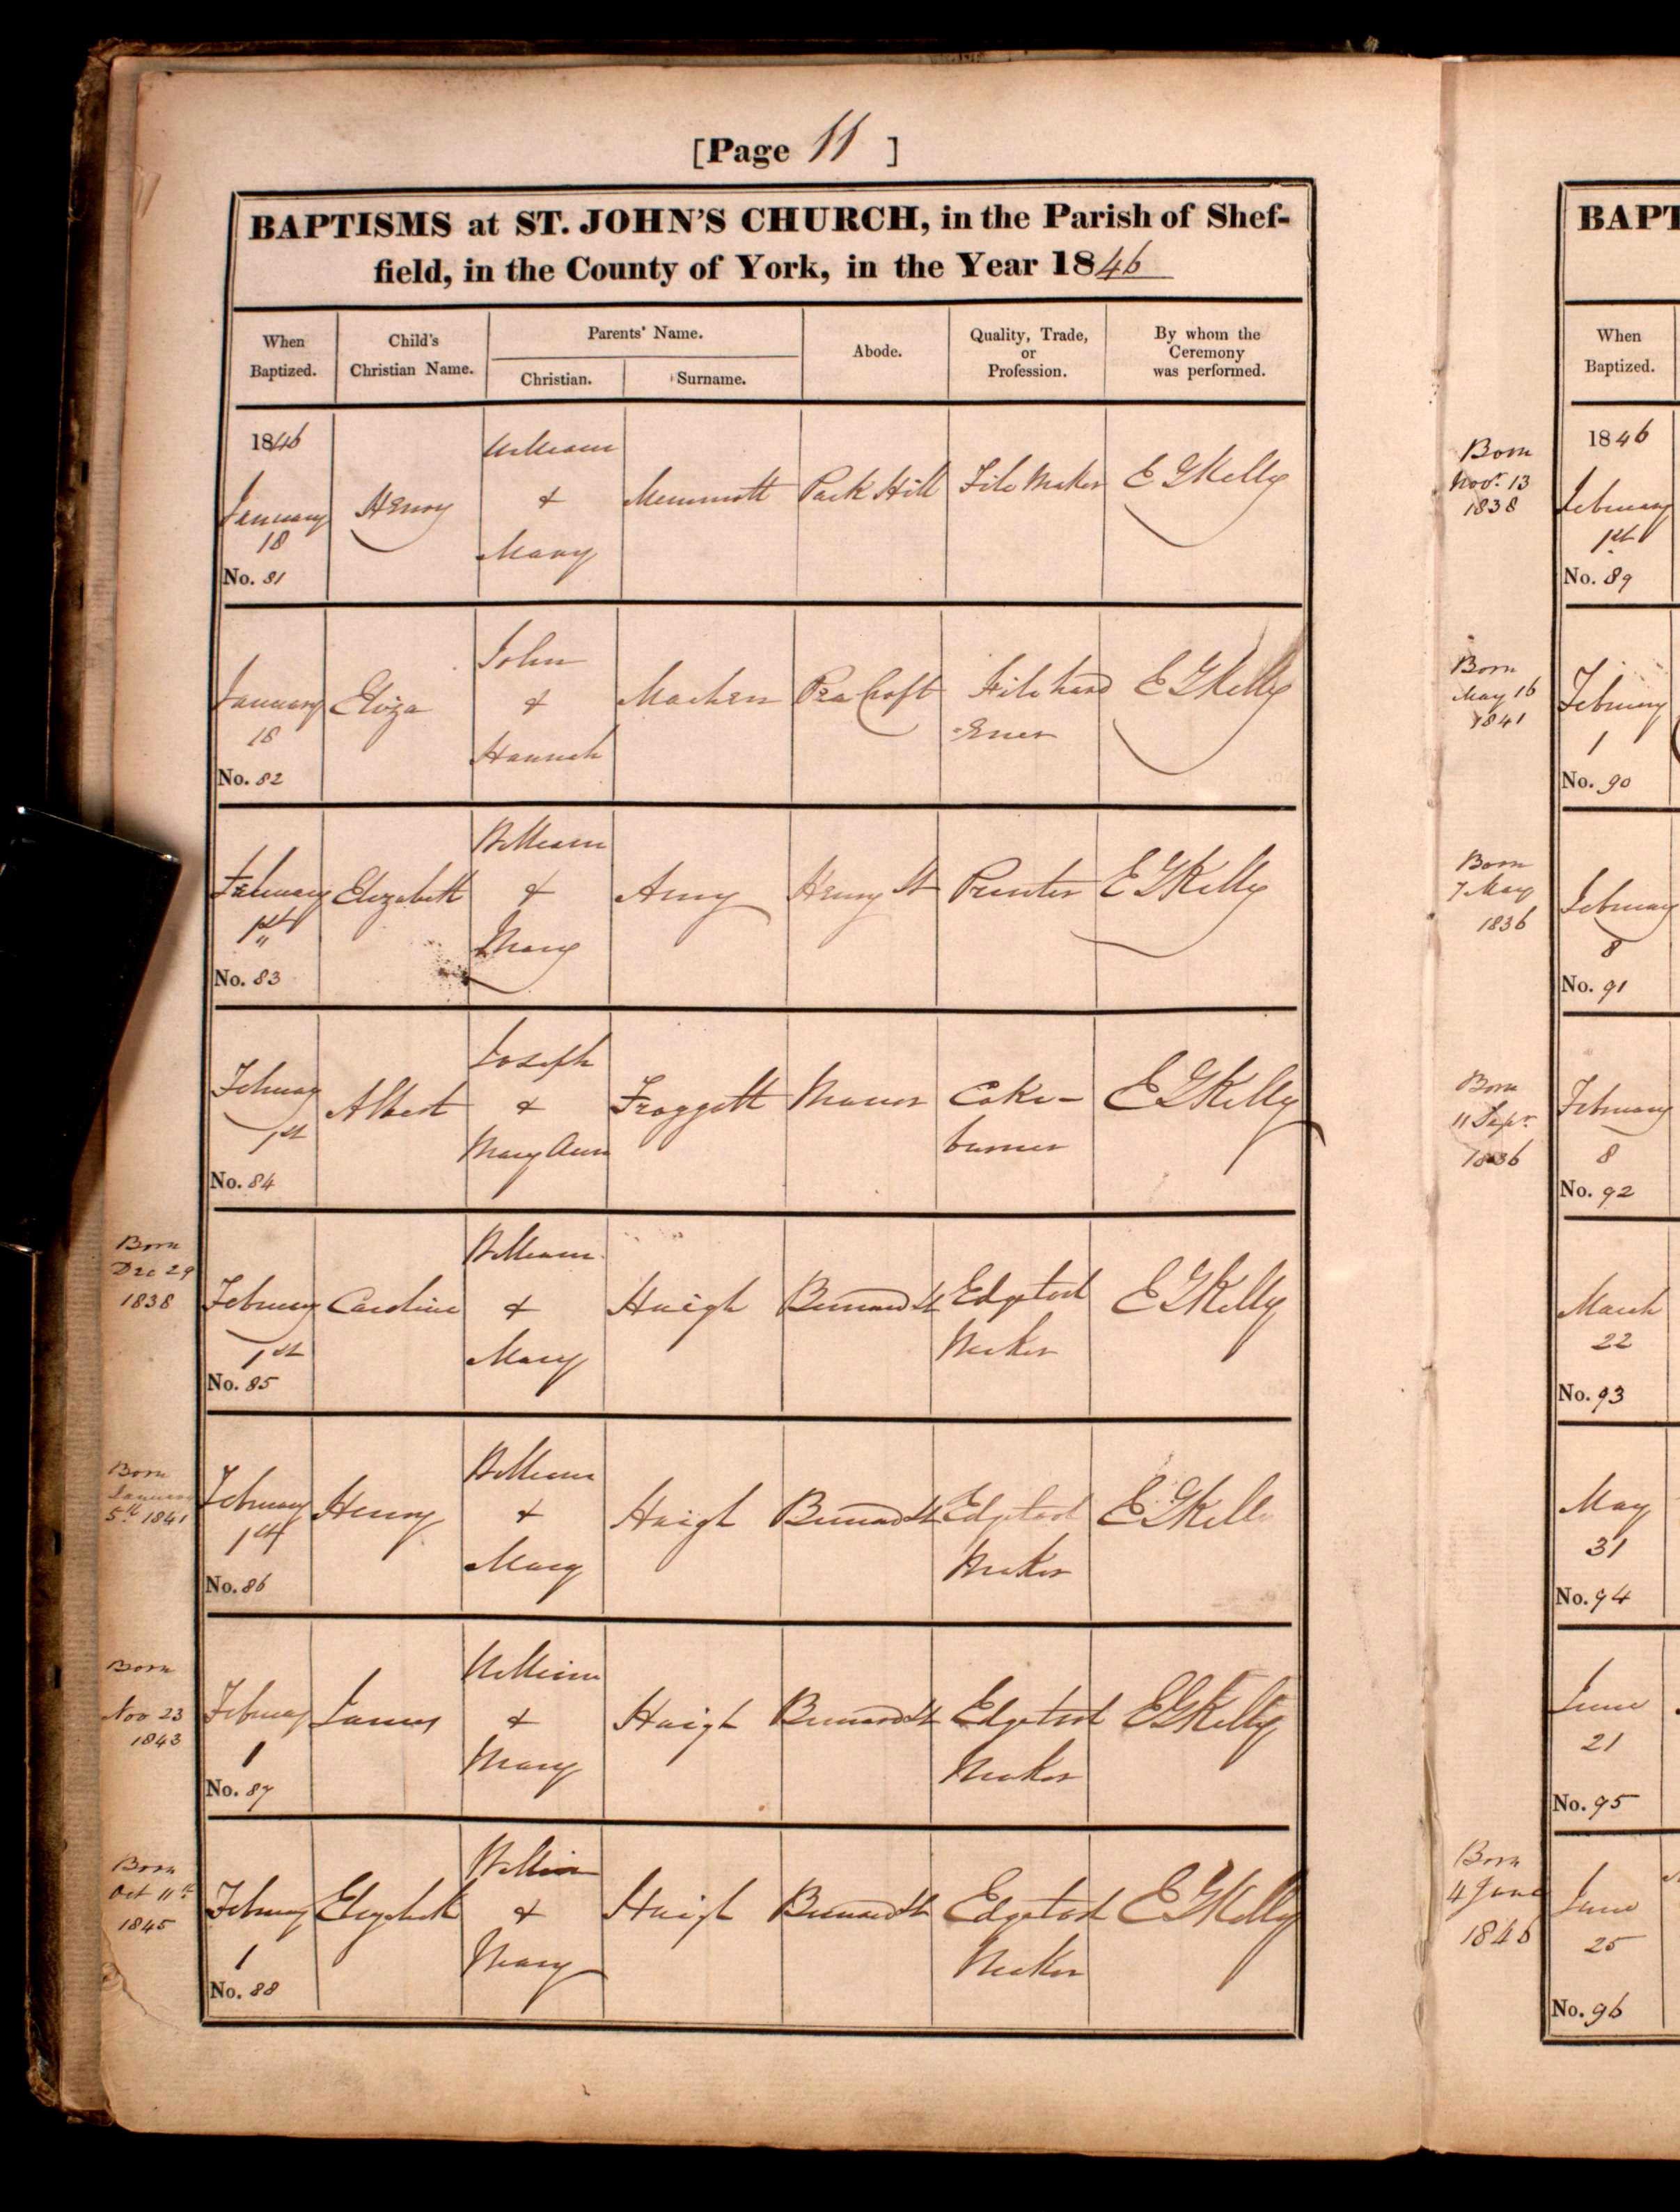 [Page 11 ]
BAPTISMS at ST. JOHN'S CHURCH, in the Parish of Shef-
field, in the County of York, in the Year 1846
When Baptized. Child's Christian Name. Parents' Name. Christian. Surname. Abode. Quality, Trade, or Profession. By whom the Ceremony was performed.
1846
January 18 Henry William & Mary Memmott Park Hill File Maker E G Kelly
No. 81
January 18 Eliza John & Hannah Machen Pea Croft File hard -ener E G Kelly
No. 82
February 1st Elizabeth William & Mary Amy Henry St Printer E G Kelly
No. 83
February 1st Albert Joseph & Mary Ann Froggett Manor Coke- burner E G Kelly
No. 84
Born Dec 29 1838
February 1st Caroline William & Mary Haigh Bernard St Edgetool Maker E G Kelly
No. 85
Born January 5th 1841
February 1st Henry William & Mary Haigh Bernard St Edgetool Maker E G Kelly
No. 86
Born Nov 23 1843
February 1 James William & Mary Haigh Bernard St Edgetool Maker E G Kelly
No. 87
Born Oct 11th 1845
February 1 Elizabeth William & Mary Haigh Bernard St Edgetool Maker E G Kelly
No. 88
BAPT
When Baptized.
1846
Born Novr. 13 1838
February 1st
No. 89
Born May 16 1841
February 1
No. 90
Born 7 May 1836
February 8
No. 91
Born 11 Sepr. 1836
February 8
No. 92
March 22
No. 93
May 31
No. 94
June 21
No. 95
Born 4 June 1846
June 25
No. 96